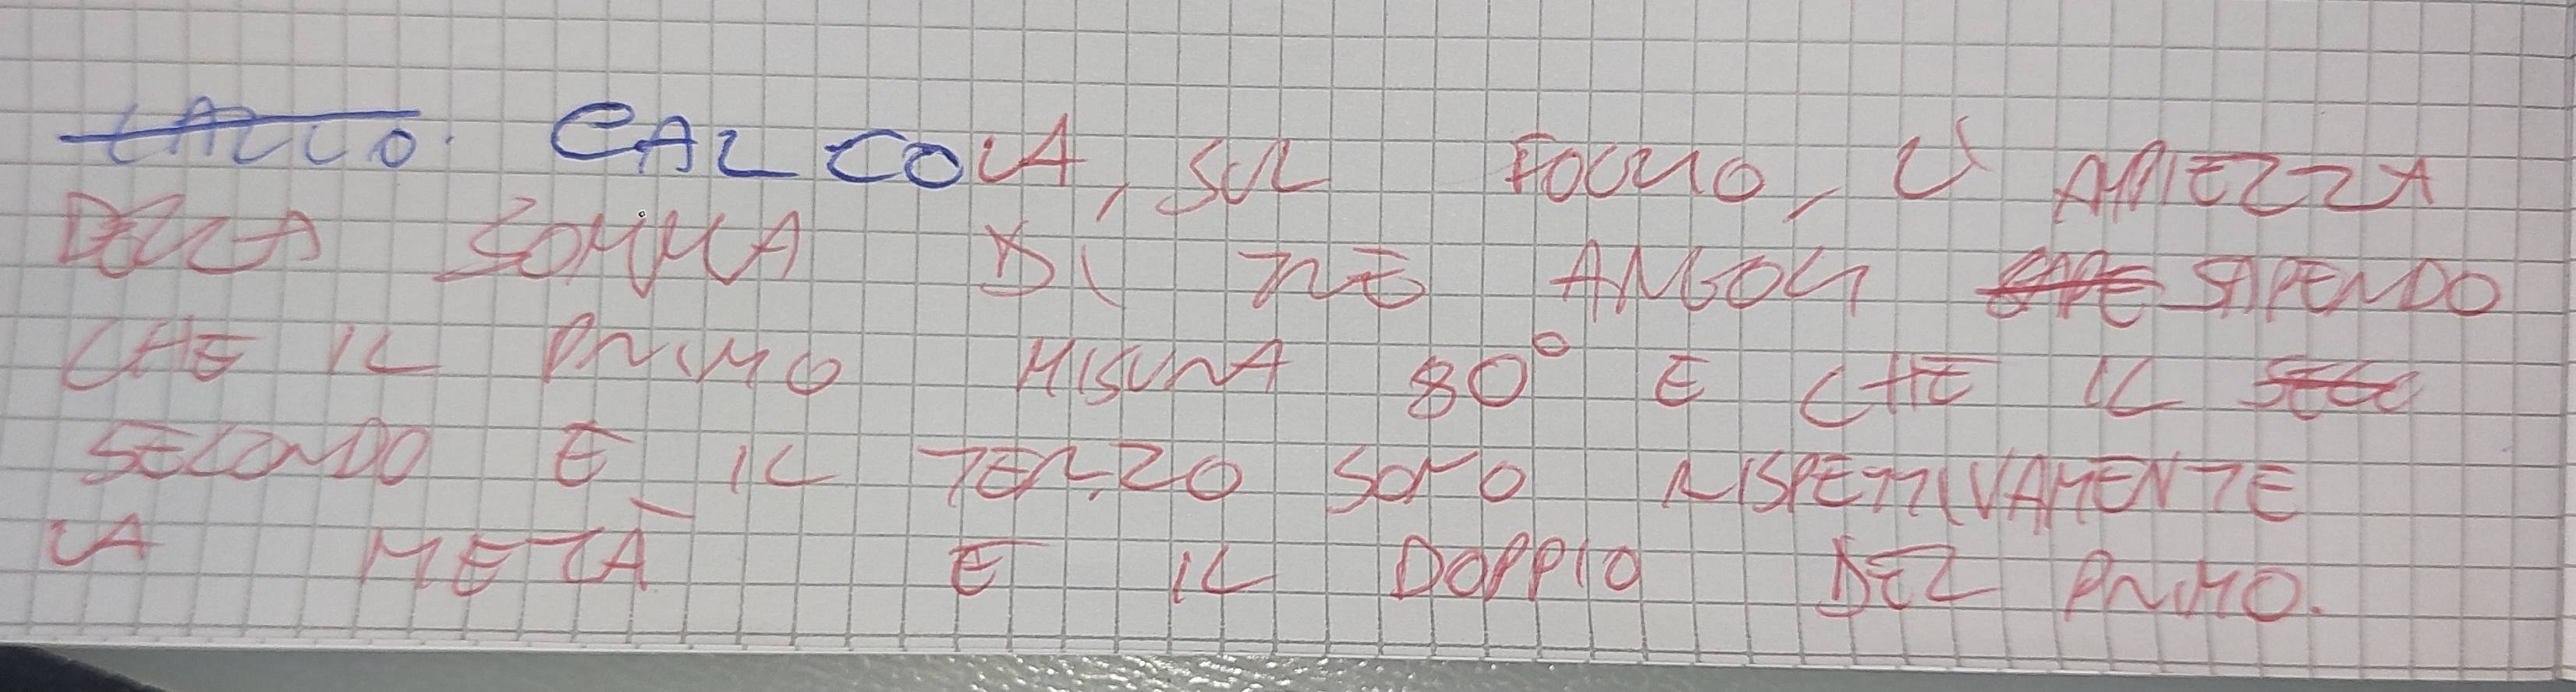 CALCOLA, SUL FOGLIO, L' AMPIEZZA
DELLA SOMMA DI TRE ANGOLI SAPENDO
CHE IL PRIMO MISURA 80° E CHE IL
SECONDO E IL TERZO SONO RISPETTIVAMENTE
LA METÀ E IL DOPPIO DEL PRIMO.